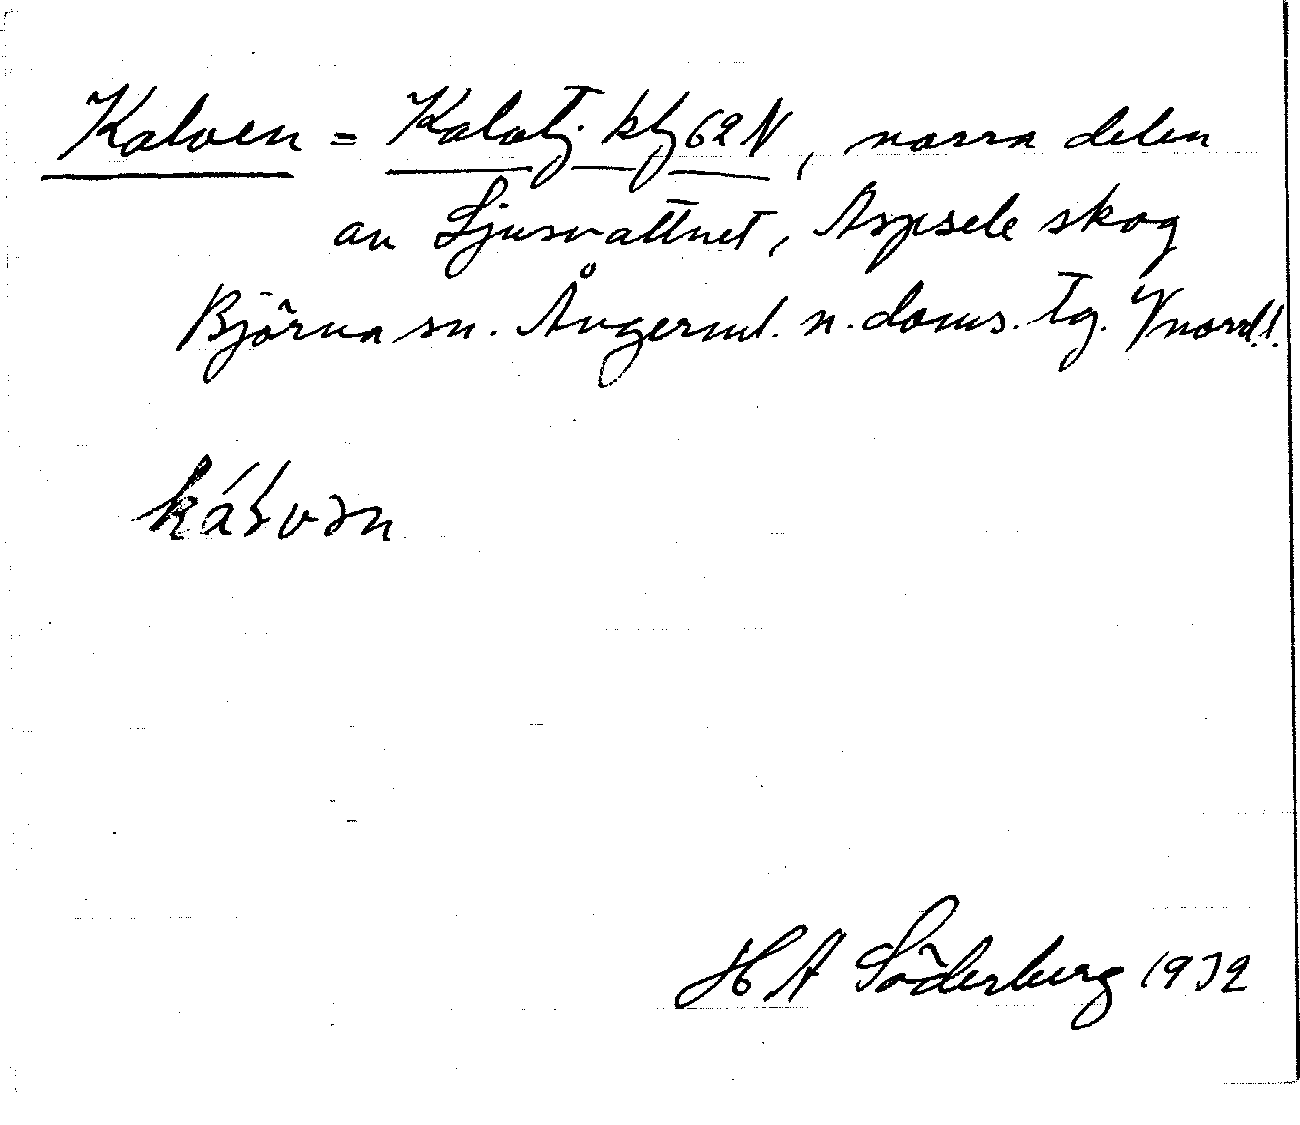 Kalven = Kalvtj. kbl 62 N, norra delen
av Ljusvattnet, Aspsele skog
Björna sn. Ångerml. n. doms. tg. V norrl.
káɫvən
H A Söderberg 1932